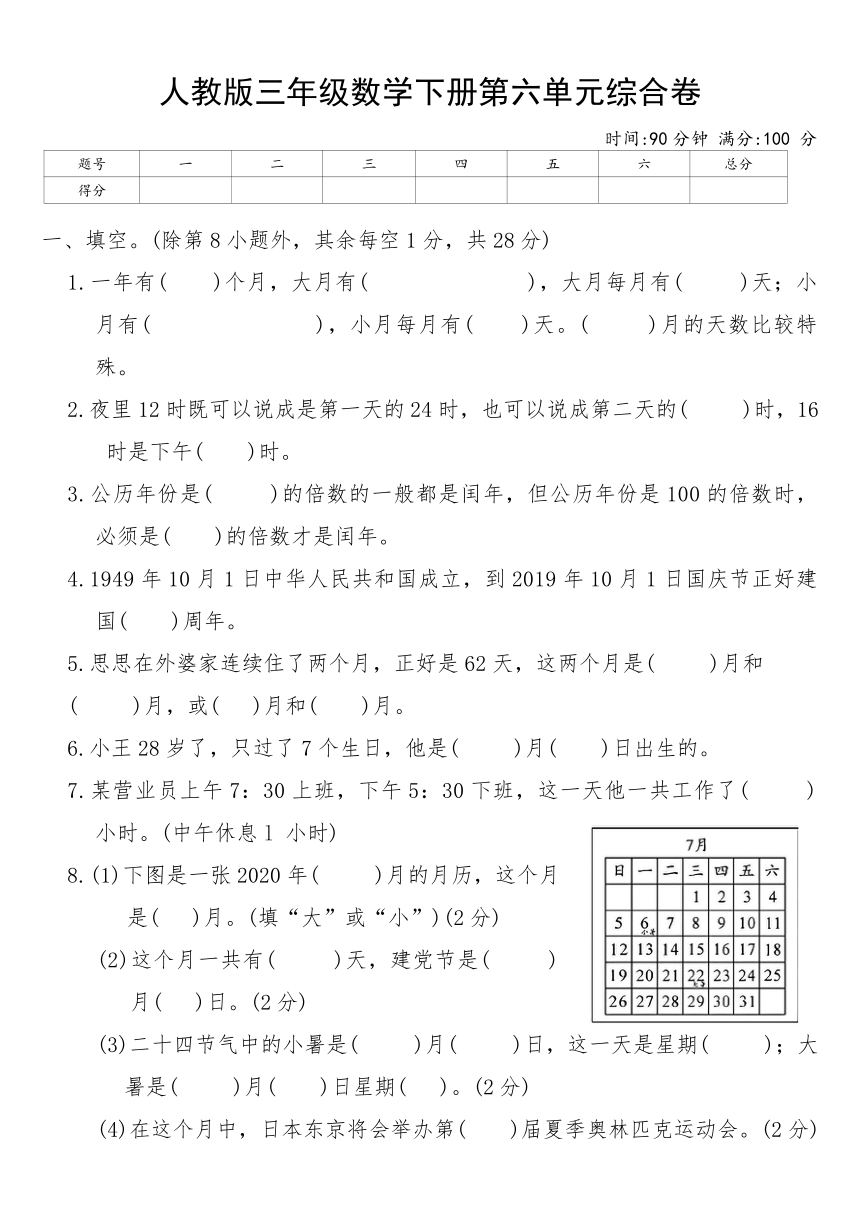 人教版三年级数学下册第六单元综合卷
时间:90分钟 满分:100 分
题号 一 二 三 四 五 六 总分
得分
一、填空。(除第8小题外，其余每空1分，共28分)
1.一年有( )个月，大月有( )，大月每月有( )天；小
月有( )，小月每月有( )天。( )月的天数比较特
殊。
2.夜里12时既可以说成是第一天的24时，也可以说成第二天的( )时，16
时是下午( )时。
3.公历年份是( )的倍数的一般都是闰年，但公历年份是100的倍数时，
必须是( )的倍数才是闰年。
4.1949年10月1日中华人民共和国成立，到2019年10月1日国庆节正好建
国( )周年。
5.思思在外婆家连续住了两个月，正好是62天，这两个月是( )月和
( )月，或( )月和( )月。
6.小王28岁了，只过了7个生日，他是( )月( )日出生的。
7.某营业员上午7：30上班，下午5：30下班，这一天他一共工作了( )
小时。(中午休息1 小时)
8.(1)下图是一张2020年( )月的月历，这个月
是( )月。(填“大”或“小”)(2分)
(2)这个月一共有( )天，建党节是( )
月( )日。(2分)
7月
日 一 二 三 四 五 六
1 2 3 4
5 6 7 8 9 10 11
小暑
12 13 14 15 16 17 18
19 20 21 22 23 24 25
大暑
26 27 28 29 30 31
(3)二十四节气中的小暑是( )月( )日，这一天是星期( )；大
暑是( )月( )日星期( )。(2分)
(4)在这个月中，日本东京将会举办第( )届夏季奥林匹克运动会。(2分)